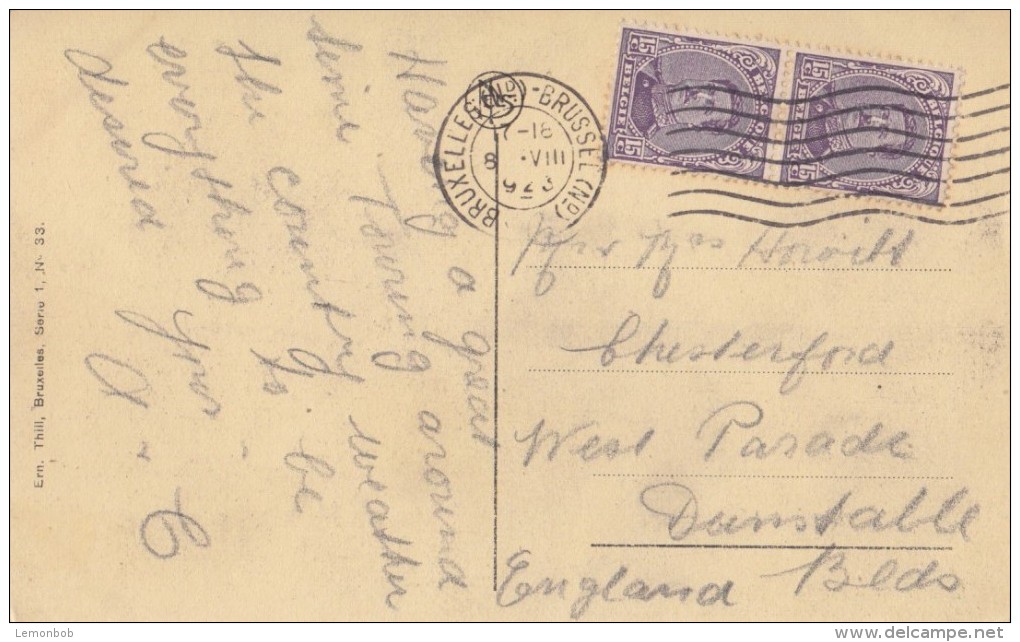 Having a great
time Touring around
the country weather
everything to be
desired yours
A - C
BRUXELLES (ND) - BRUSSEL (ND)
17-18
8 VIII
1923
15 C BELGIE BELGIQUE 15 C
15 C BELGIE BELGIQUE 15 C
Mr & Mrs
Chesterford
West Parade
Dunstable
England Beds
Ern. Thill, Bruxelles, Serie 1, No 33.
© Lemonbob
www.delcampe.net